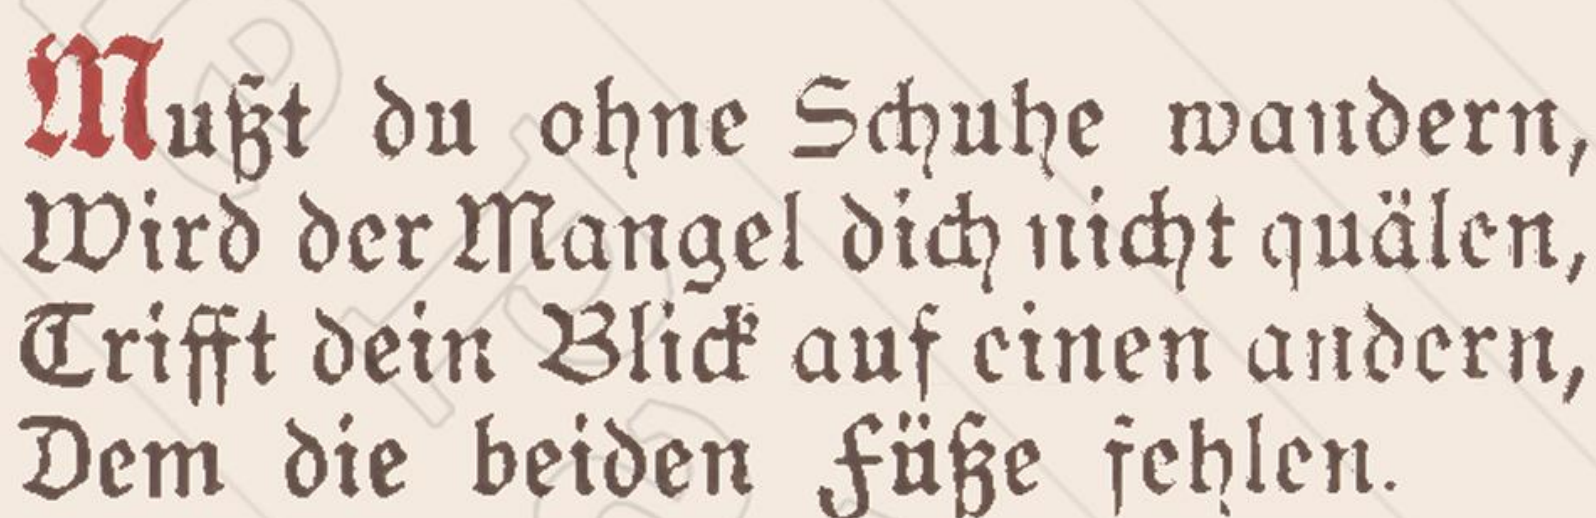 Mußt du ohne Schuhe wandern,
Wird der Mangel dich nicht quälen,
Trifft dein Blick auf einen andern,
Dem die beiden Füße fehlen.